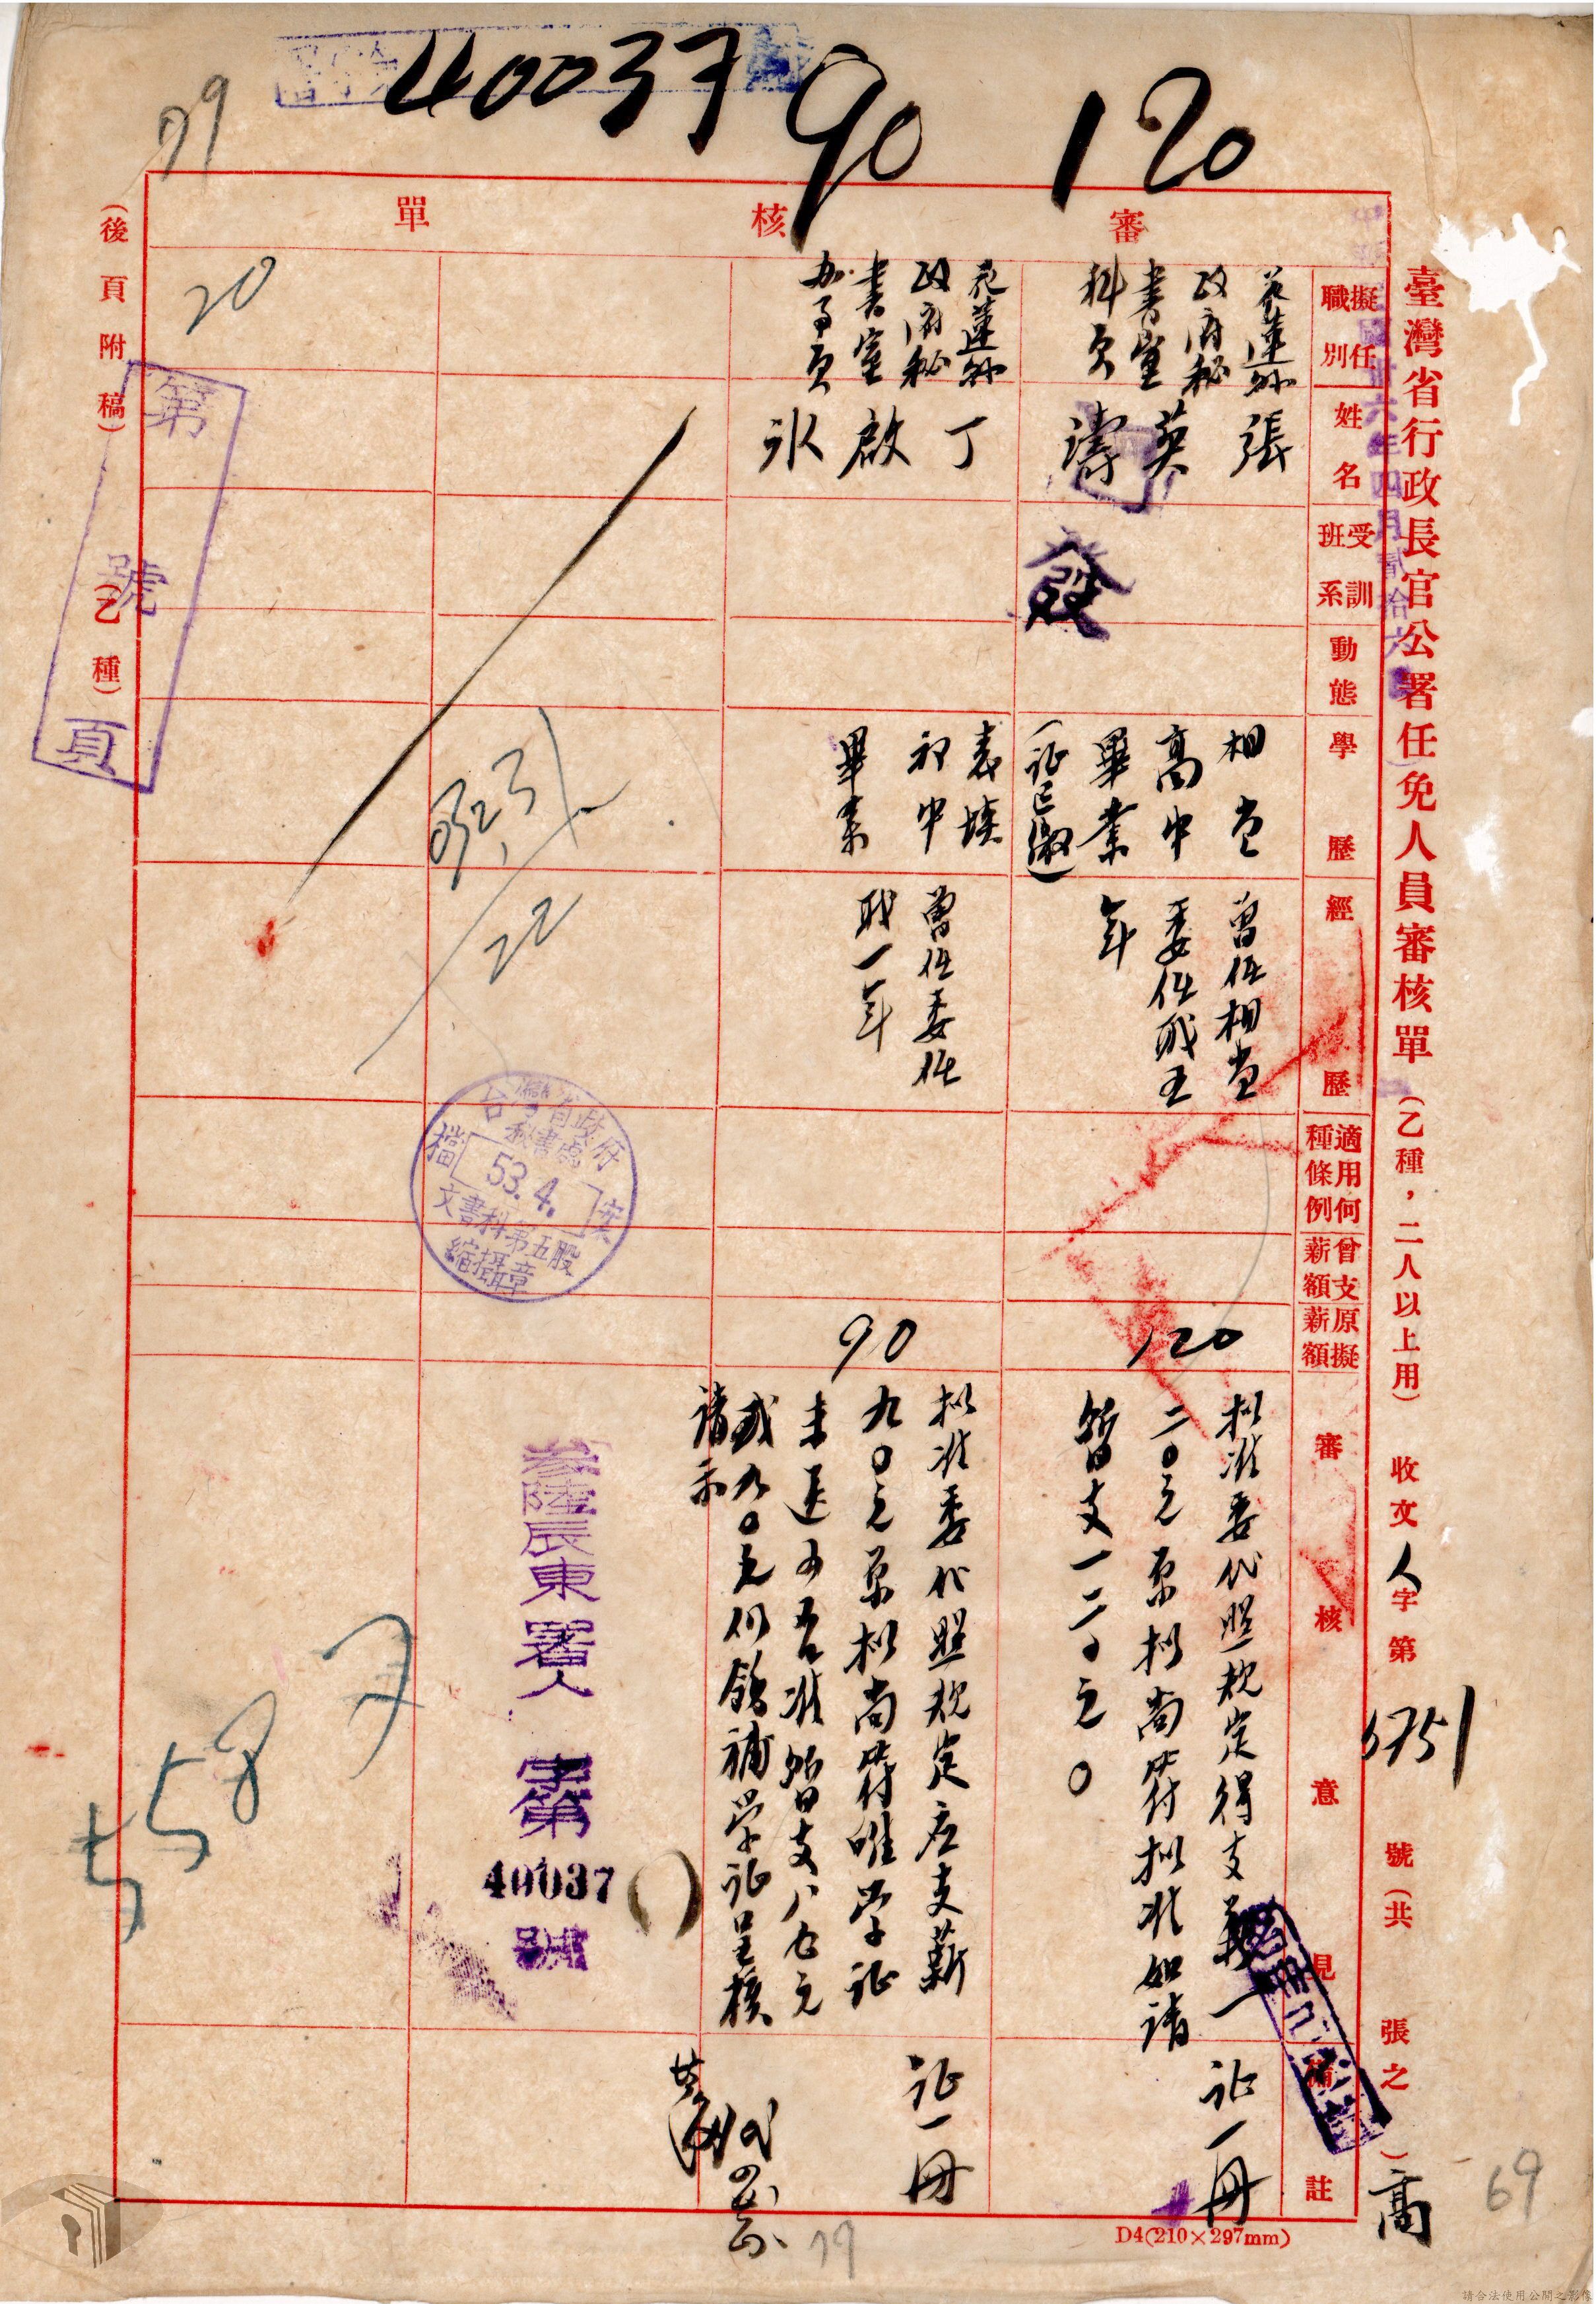 40037
90
120
79
臺灣省行政長官公署任免人員審核單(乙種,二人以上用) 收文人字第5751號(共 張之 )
高
69
審核單
擬任職別
姓名
受訓班系
動態
學歷
經歷
適用何種條例
曾支薪額
原擬薪額
審核意見
備註
花蓮縣
政府秘
書室
科員
張英濤
相當
高中
畢業
(證已繳)
曾任相當
委任職五
年
120
拟准委代照規定得支薪一
二〇元原拟尚符拟准如請
暫支一二〇元〇
证一冊
花蓮縣
政府秘
書室
办事員
丁啟
表填
初中
畢業
曾任委任
职一年
90
拟准委代照規定应支薪
九〇元原拟尚符唯学证
未送可否准暫支八〇元
或九〇元仍飭補学证呈核
請示
证一冊
發
台灣省政府
秘書處
檔案
53.4.
文書科第五股
縮攝章
署人
字第
40037
號
20
(後頁附稿)
(乙種)
第 號 頁
22
79
D4(210×297mm)
請合法使用公開之影像